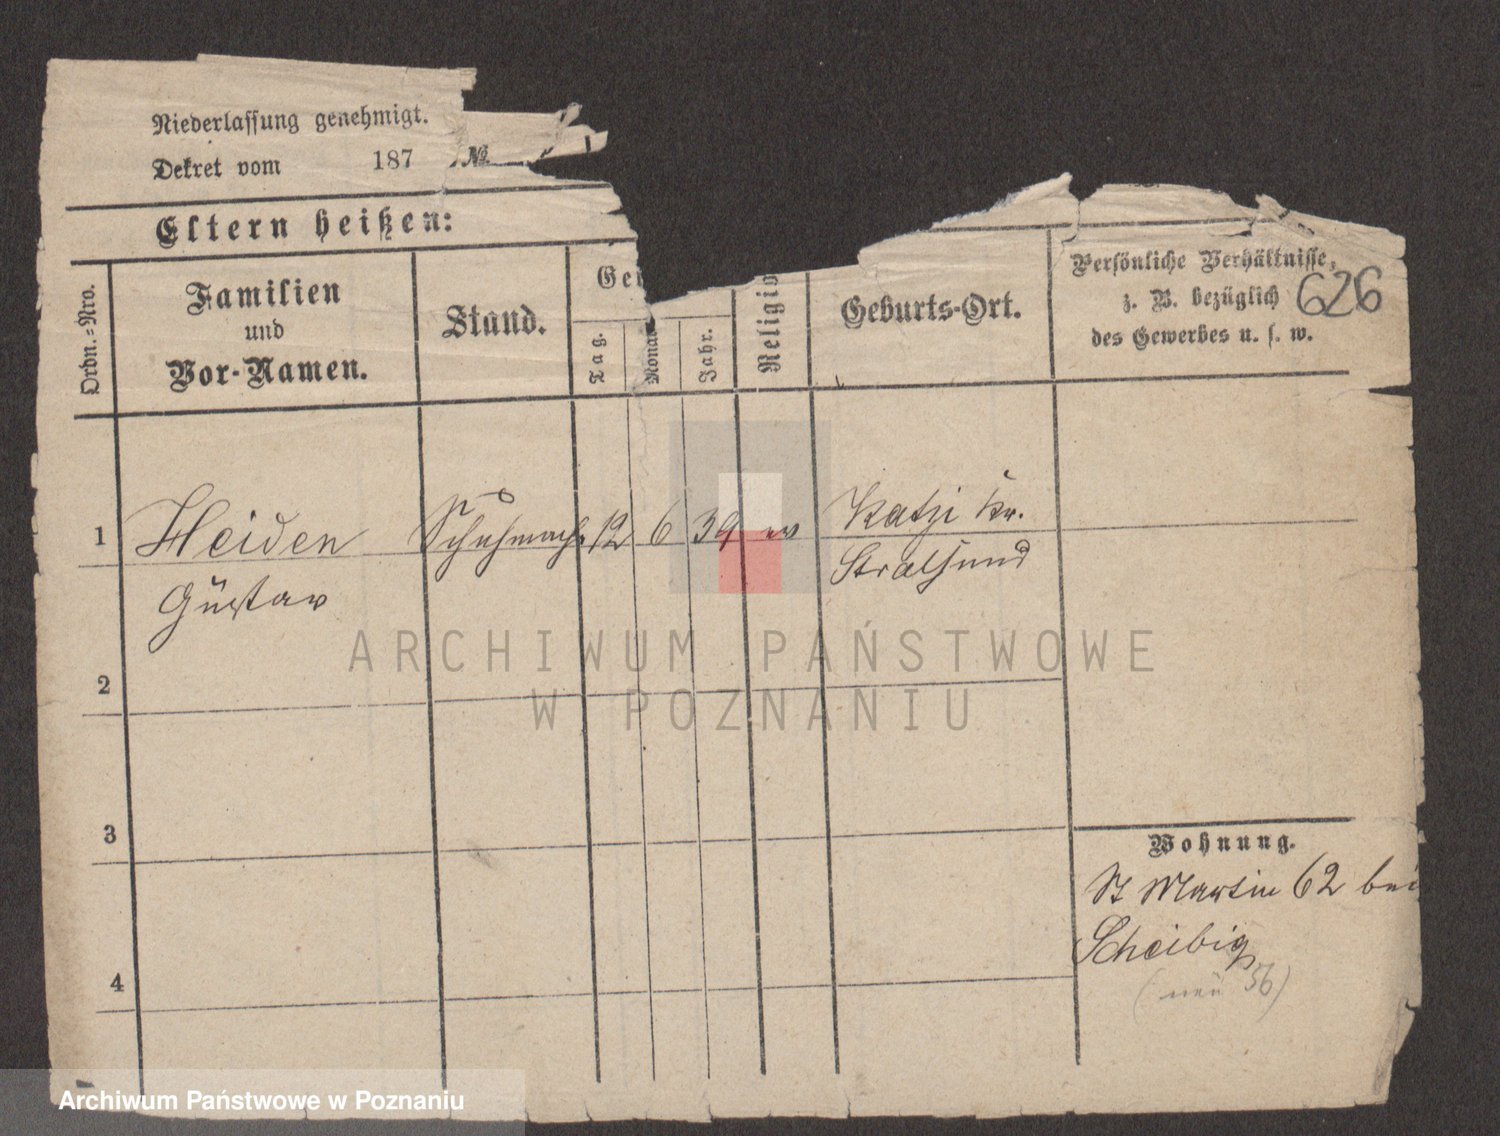 Niederlassung genehmigt.
Dekret vom 187 №
Eltern heißen:
Ordn.=Nro.
Familien
und
Vor-Namen.
Stand.
Ge
Tag.
Monat
Jahr.
Religio
Geburts-Ort.
Persönliche Verhältnisse,
z. B. bezüglich
des Gewerbes u. s. w.
626
1
Heiden
Gustav
Schuhmach
12
6
39
ev
Katzi Kr.
Stralsund
2
3
4
Wohnung.
St Martin 62 bei
Scheibig
(neu 56)
ARCHIWUM PAŃSTWOWE
W POZNANIU
Archiwum Państwowe w Poznaniu